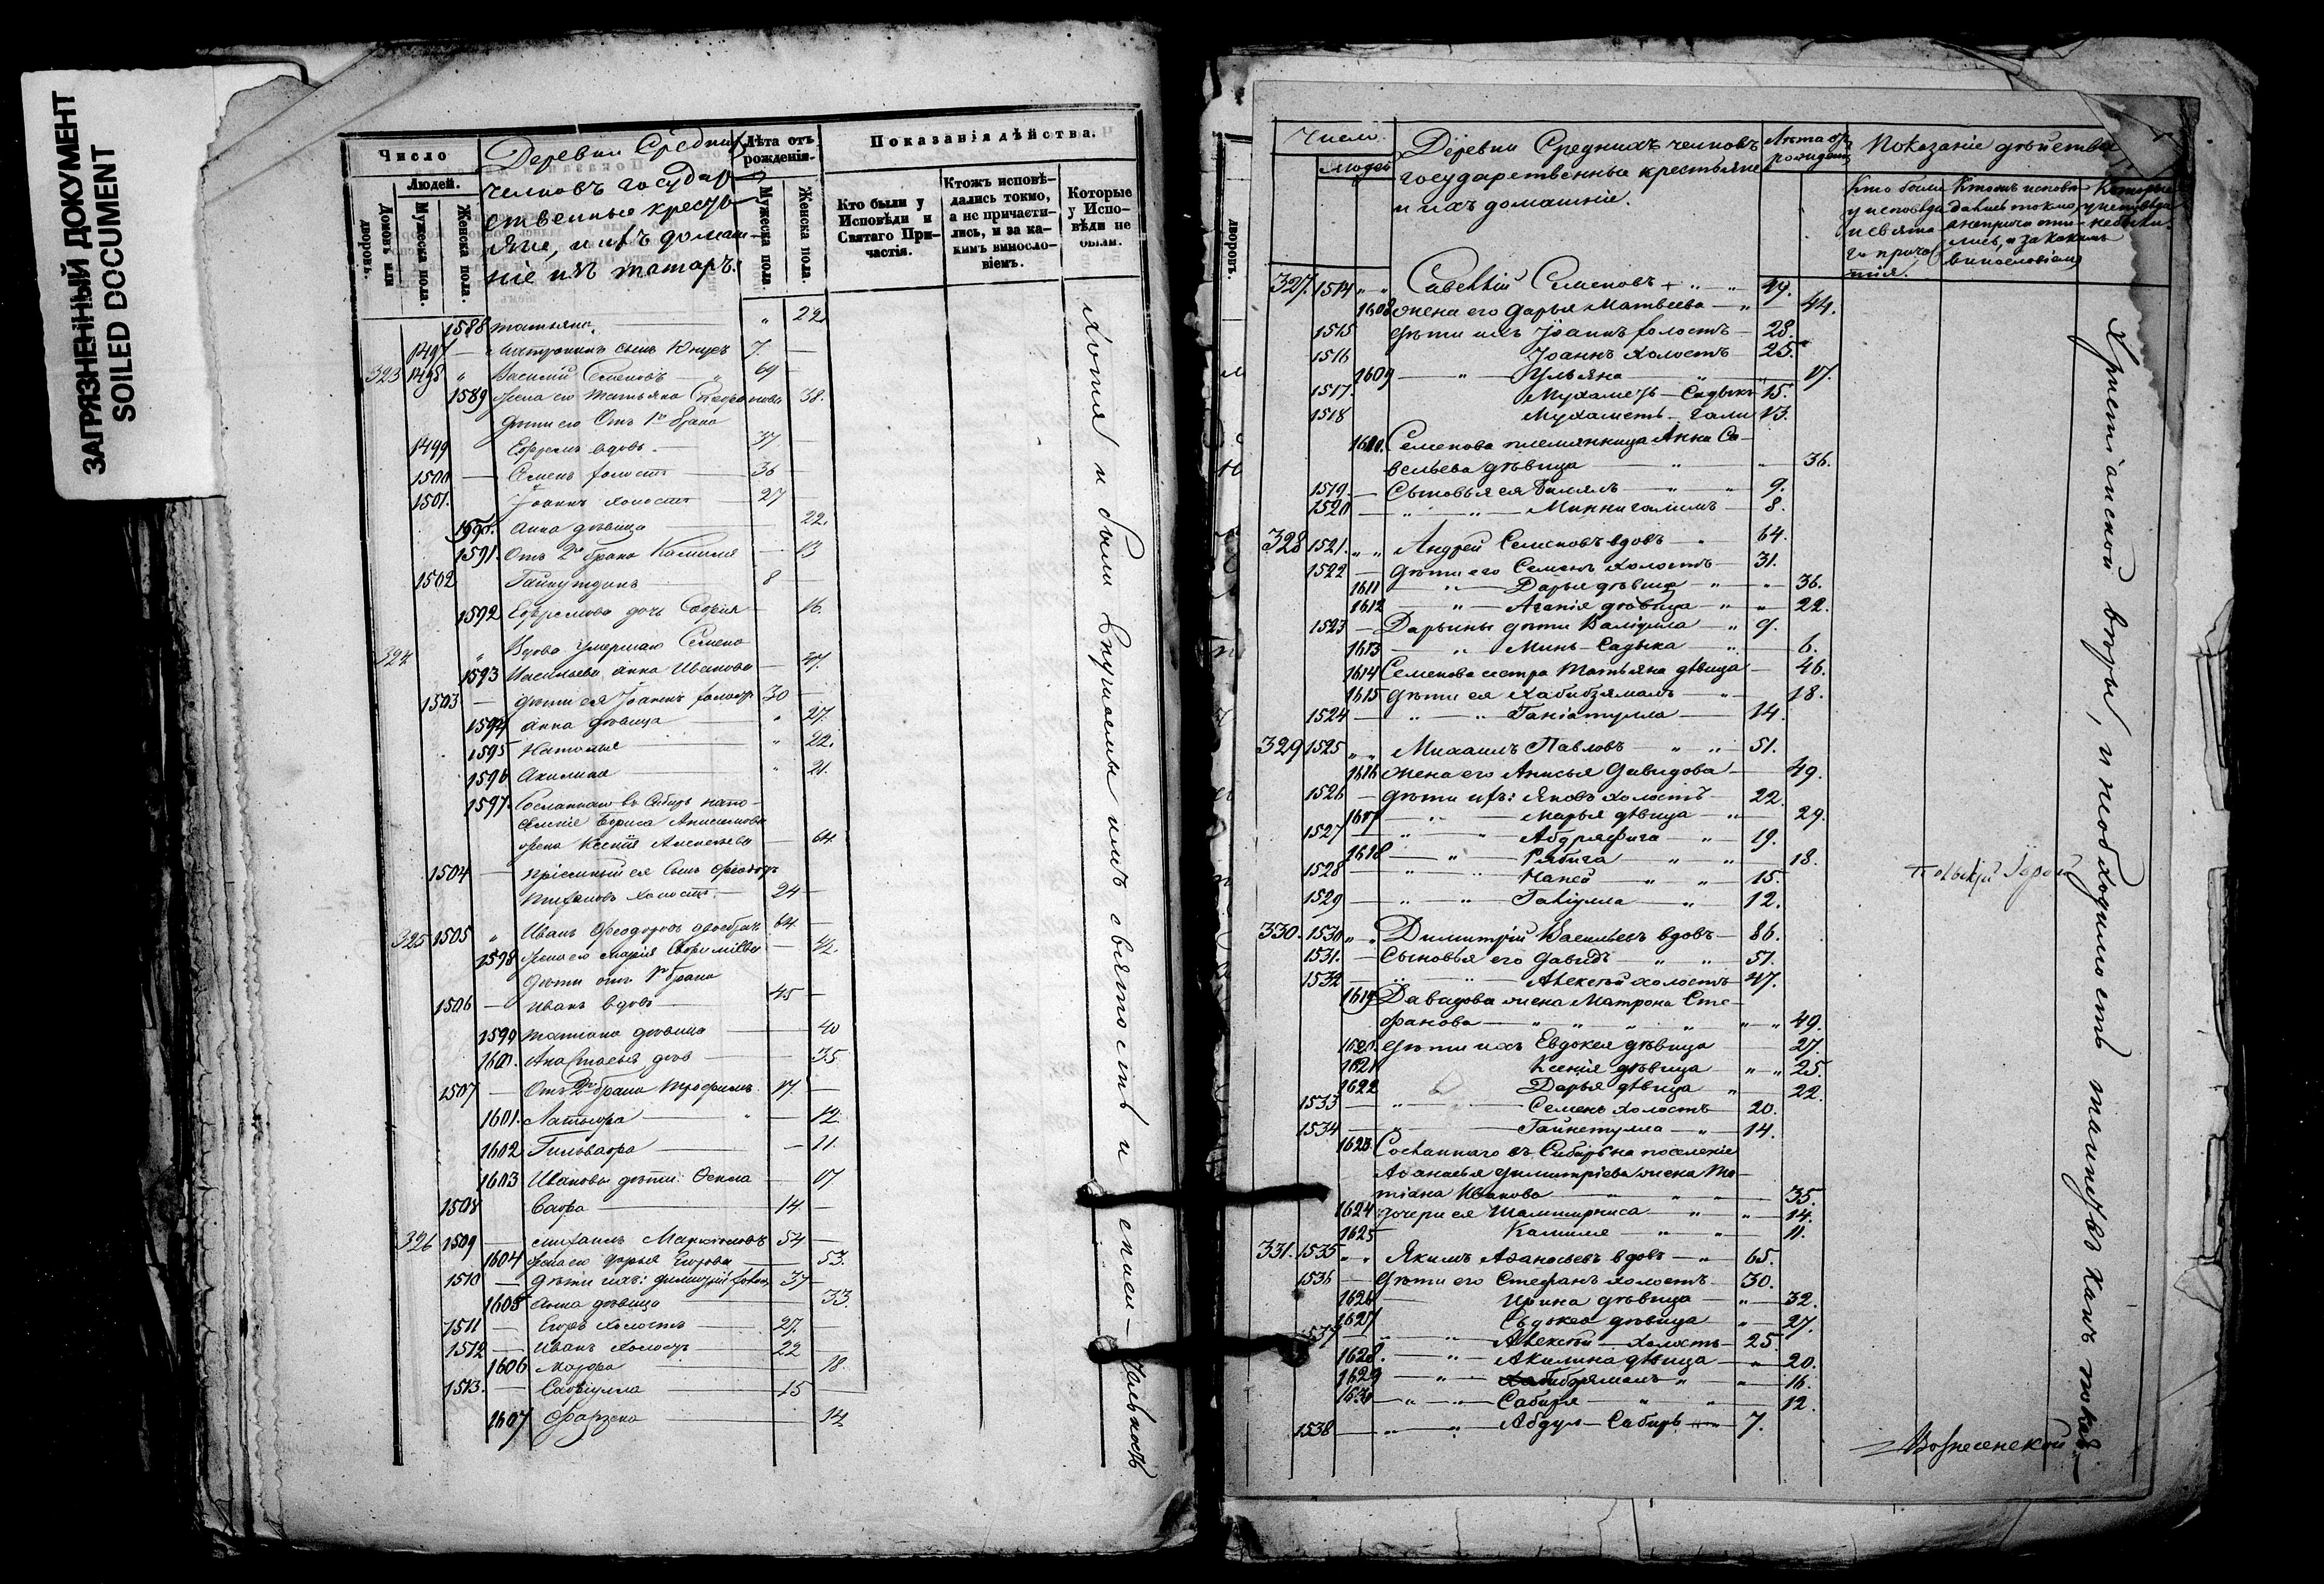 ЗАГРЯЗНЕННЫЙ ДОКУМЕНТ
SOILED DOCUMENT
Число
Людей.
Домовъ или дворовъ.
Мужеска пола.
Женска пола.
Деревни Среднихъ
Челновъ государ-
ственные кресть-
яне, и ихъ домаш-
ніе изъ татаръ.
Лѣта отъ рожденія.
Мужеска пола.
Женска пола.
Показанія дѣйства.
Кто были у Исповѣди и Святаго Причастія.
Ктожъ исповѣдались токмо, а не причастились, и за какимъ винословіемъ.
Которые у Исповѣди не были.
1588 Татьяна " 22
1497 сынъ Юнусъ 7.
323 1498 " Василій Семеновъ 69
1589 Жена его Татьяна 38.
Дѣти его Отъ 1го брака
1499 Ефремъ вдовъ 37
1500 Семенъ холостъ 36
1501. Іоаннъ холостъ 27
1590. Анна дѣвица 22.
1591. Отъ 2го брака Камиля 13
1502 8
1592 Ефремова дочь Софія 16.
324 " Вдова умершаго Семена
1593 Васильева Анна Иванова 47.
1503 Дѣти ея Іоаннъ холостъ 30
1594 Анна дѣвица " 27.
1595 Наталья " 22.
1596 Акилина " 21.
1597. Сосланнаго въ Сибирь на по-
селеніе Бориса Анисимова
жена Ксенія Алексѣева 64.
1504 Пріемный ея сынъ Ѳеодоръ
холостъ 24
325 1505 " Иванъ Ѳеодоровъ двоебрач. 64.
1598 Жена его Марія 42.
Дѣти отъ 1го брака
1506 Иванъ вдовъ 45
1599 Татіана дѣвица 40
1600. Анастасья дѣв. 35
1507 Отъ 2го брака Трофимъ 17.
1601. " 12.
1602 11.
1603 Ивановы дѣти: 17
1508 Сафа 14.
326 1509 Михаилъ 54
1604 Жена его Дарья Егорова 53.
1510 Дѣти ихъ: Димитрій холост. 37
1605 Анна дѣвица 33.
1511 Егоръ холостъ 27.
1512 Иванъ холостъ 22
1606 18.
1513. Сафіулла 15
1607 14.
Хотя и были внушаемы имъ святость и спаси-тельность
Число.
Людей
Деревни Среднихъ Челновъ
государственные крестьяне
и ихъ домашніе.
Лѣта отъ рожденія
Показаніе дѣйства
Кто были у исповѣди и святаго причастія.
Ктожъ исповѣдались токмо, а не причастились, и за какимъ винословіемъ
Которые у исповѣди не были.
327. 1514 " " Савелій Семеновъ 49.
1608 Жена его Дарья Матвеева " 44.
1515 Дѣти ихъ Іоаннъ холостъ 28.
1516 Іоаннъ холостъ 25.
1609 " Ульяна " 17.
1517. Мухаметъ-Садыкъ 15.
1518 Мухаметъ-Гали 13.
1610. Семенова племянница Анна Са-
вельева дѣвица " " 36.
1519. Сыновья ея Билялъ " " 9.
1520 " " Миннигалимъ 8.
328 1521. " " Андрей Семеновъ вдовъ " 64.
1522 Дѣти его Семенъ холостъ 31.
1611 " Дарья дѣвица " " 36.
1612 " Агапія дѣвица " " 22.
1523 Дарьины дѣти Валіулла " 9.
1613 " Минъ-Садыка " 6.
1614 Семенова сестра Татьяна дѣвица 46.
1615 Дѣти ея Хабибзямалъ " 18.
1524 " " Ганіатулла 14.
329 1525 " " Михаилъ Павловъ " " 51.
1616 Жена его Анисья Давидова 49.
1526 Дѣти ихъ: Яковъ холостъ 22.
1617 " Марья дѣвица " 29.
1527 " " " 19.
1618 " Рябига " " 18.
1528 " " " " 15.
1529 " " " 12.
330. 1530 " " Димитрій Васильевъ вдовъ 86.
1531. Сыновья его Давидъ " " 51.
1532 " " Алексѣй холостъ 47.
1619 Давидова жена Матрона Сте-
фанова " " " " " " 49.
1620. Дѣти ихъ Евдокея дѣвица 27.
1621 Ксенія дѣвица " " 25.
1622 Дарья дѣвица " 22.
1533 " Семенъ холостъ 20.
1534 " Гайнетулла " 14.
1623 Сосланнаго въ Сибирь на поселеніе
Аѳанасья Димитріева жена Та-
тіана Иванова " " " 35.
1624 Дочери ея " " 14.
1625 Камиля " " 11.
331. 1535 " " Якимъ Аѳанасьевъ вдовъ " 65.
1536 Дѣти его Стефанъ холостъ 30.
1626 Ирина дѣвица " 32.
1627 Евдокея дѣвица " 27.
1537 " " Алексѣй холостъ 25.
1628. " Акилина дѣвица " 20.
1629 " Хабибзямалъ " " 16.
1630 " " Сабиря " " 12.
1538 " " Абдул-Сабиръ " 7.
Христіанской вѣры, и необходимость таинствъ
Вознесенской